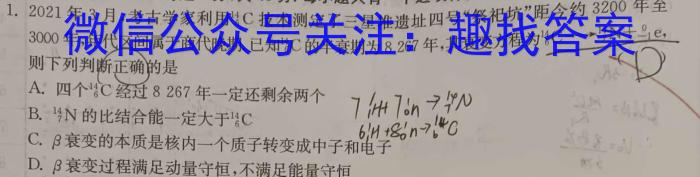 1. 2021年3月,考古学家利用¹⁴₆C技术测定了三星堆遗址四号“祭祀坑”距今约3200年至
3000年,年代区间属于商代晚期,已知¹⁴₆C的半衰期为8 267年,其衰变方程为
微信公众号关注:趣找答案
则下列判断正确的是
A. 四个¹⁴₆C经过8 267年一定还剩余两个
B. ¹⁴₇N的比结合能一定大于¹⁴₆C
C. β衰变的本质是核内一个质子转变成中子和电子
D. β衰变过程满足动量守恒,不满足能量守恒
7¹₁H+7¹₀n→¹⁴₇N
6¹₁H+8¹₀n→¹⁴₆C